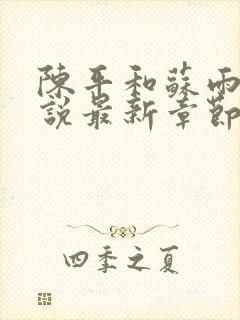 陳平和蘇雨
說最新章節
四季之夏